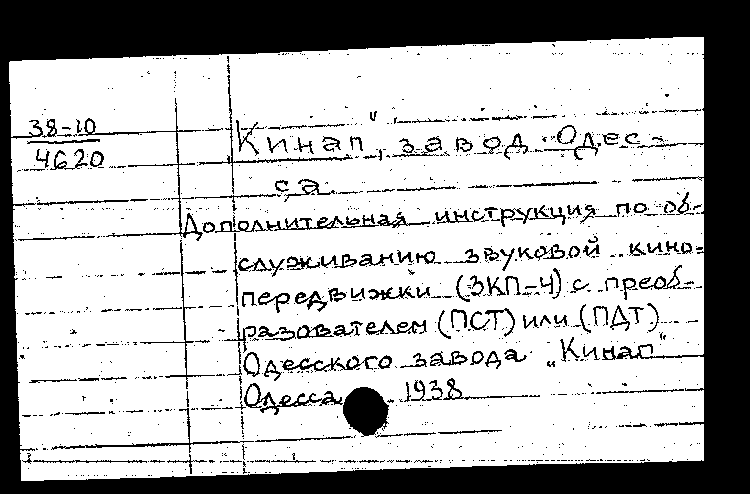 38-10
4620
Кинап", завод. Одес-
са.
Дополнительная инструкция по об-
служиванию звуковой кино-
передвижки (ЗКП-4) с преоб-
разователем (ПСТ) или (ПДТ)
Одесского завода „Кинап"
Одесса 1938